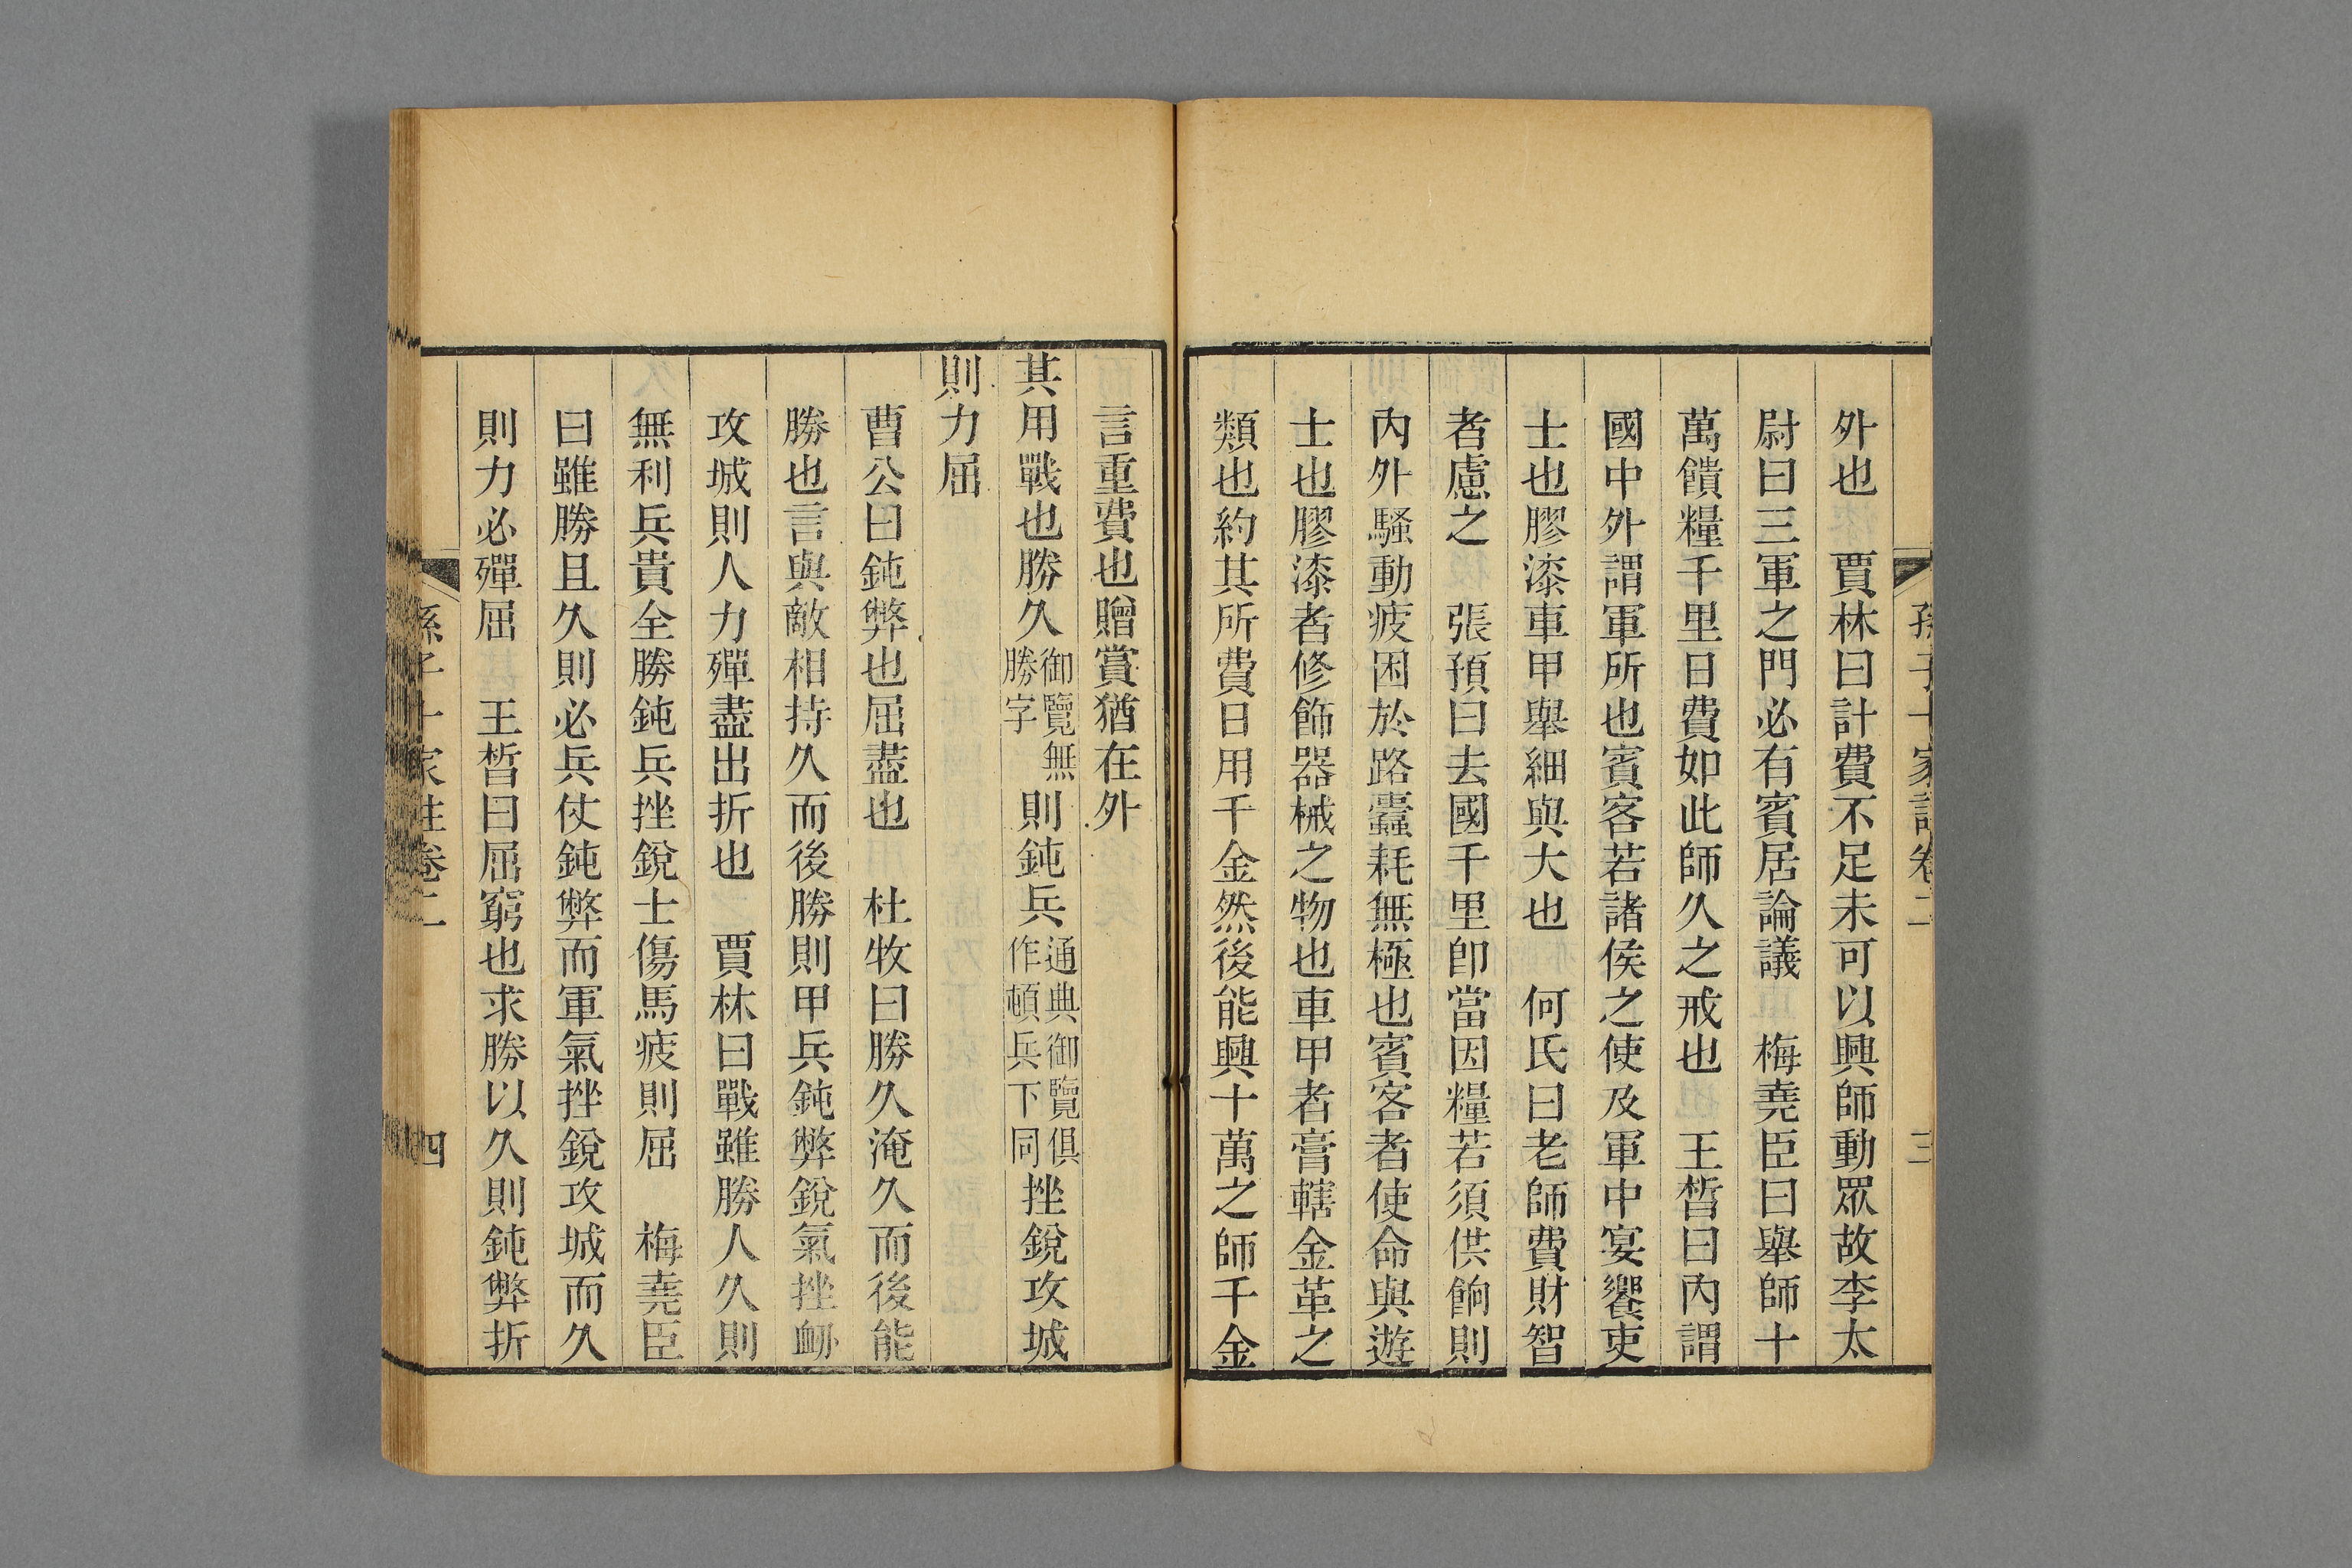 孫子十家註卷二 三
外也 賈林曰計費不足未可以興師動眾故李太
尉曰三軍之門必有賓居論議 梅堯臣曰舉師十
萬饋糧千里日費如此師久之戒也 王晳曰內謂
國中外謂軍所也賓客若諸侯之使及軍中宴饗吏
士也膠漆車甲舉細與大也 何氏曰老師費財智
者慮之 張預曰去國千里卽當因糧若須供餉則
內外騷動疲困於路蠹耗無極也賓客者使命與遊
士也膠漆者修飾器械之物也車甲者膏轄金革之
類也約其所費日用千金然後能興十萬之師千金
言重費也贈賞猶在外
其用戰也勝久御覽無勝字則鈍兵通典御覽俱作頓兵下同挫銳攻城
則力屈
曹公曰鈍弊也屈盡也 杜牧曰勝久淹久而後能
勝也言與敵相持久而後勝則甲兵鈍弊銳氣挫衂
攻城則人力殫盡出折也 賈林曰戰雖勝人久則
無利兵貴全勝鈍兵挫銳士傷馬疲則屈 梅堯臣
曰雖勝且久則必兵仗鈍弊而軍氣挫銳攻城而久
則力必殫屈 王晳曰屈窮也求勝以久則鈍弊折
孫子十家註卷二 四